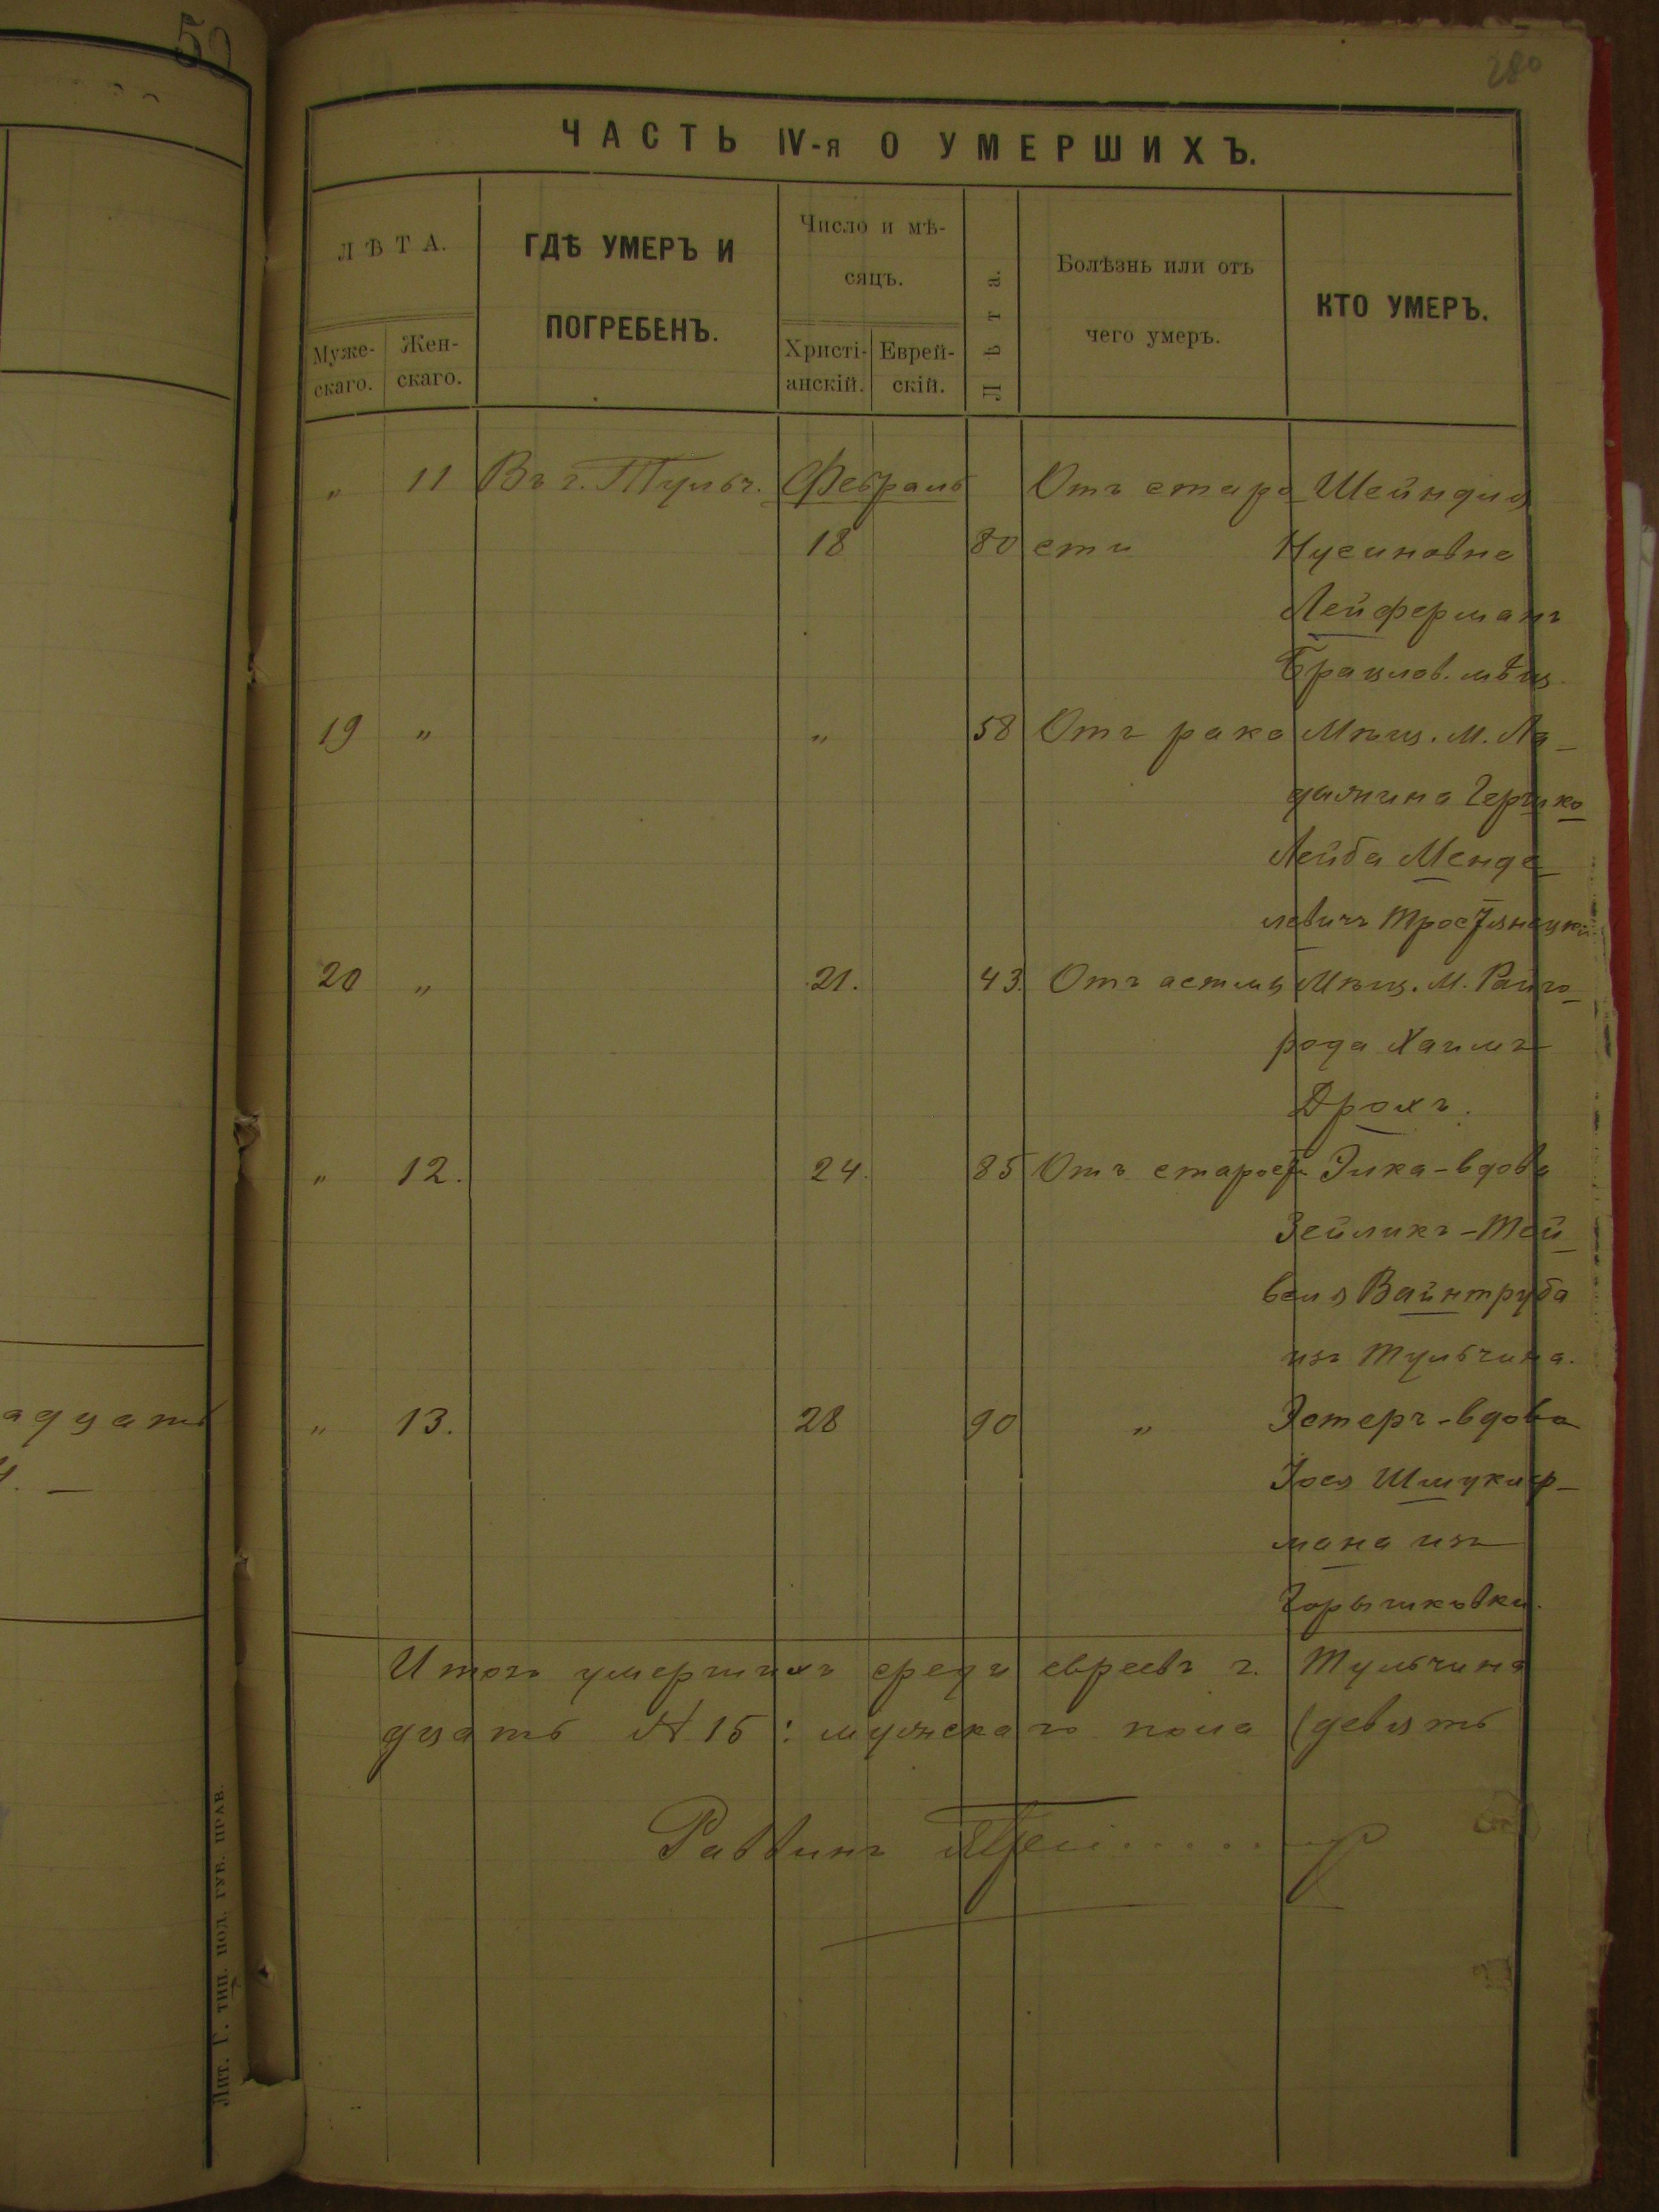 50
280
ЧАСТЬ IV-я О УМЕРШИХЪ.
ЛѢТА.
Муже-
скаго.
Жен-
скаго.
ГДѢ УМЕРЪ И
ПОГРЕБЕНЪ.
Число и мѣ-
сяцъ.
Христі-
анскій.
Еврей-
скій.
Лѣта.
Болѣзнь или отъ
чего умеръ.
КТО УМЕРЪ.
„ 11 Въ г. Тульч. Февраль Отъ старо Шейндля
18 80 сти Нусиновна
Лейферманъ
Брацлов. мѣщ.
19 „ „ 58 Отъ рака Мѣщ. м. Ла-
дыжина Гершко
Лейба Менде-
левичъ Тростянецкій
20 „ 21. 43. Отъ астмы Мѣщ. м. Райго-
рода Хаимъ
Дрохъ.
„ 12. 24. 85 Отъ старост. Элка-вдова
Зейликъ-Той-
веля Вайнтруба
изъ Тульчина.
„ 13. 28 90 „ Эстеръ-вдова
Іося Шмуклер-
мана изъ
Горышковки.
Итогъ умершихъ среди евреевъ г. Тульчина
дцать № 15: мужскаго пола (девять
Раввинъ
адцать
Лит. Г. тип. под. губ. прав.